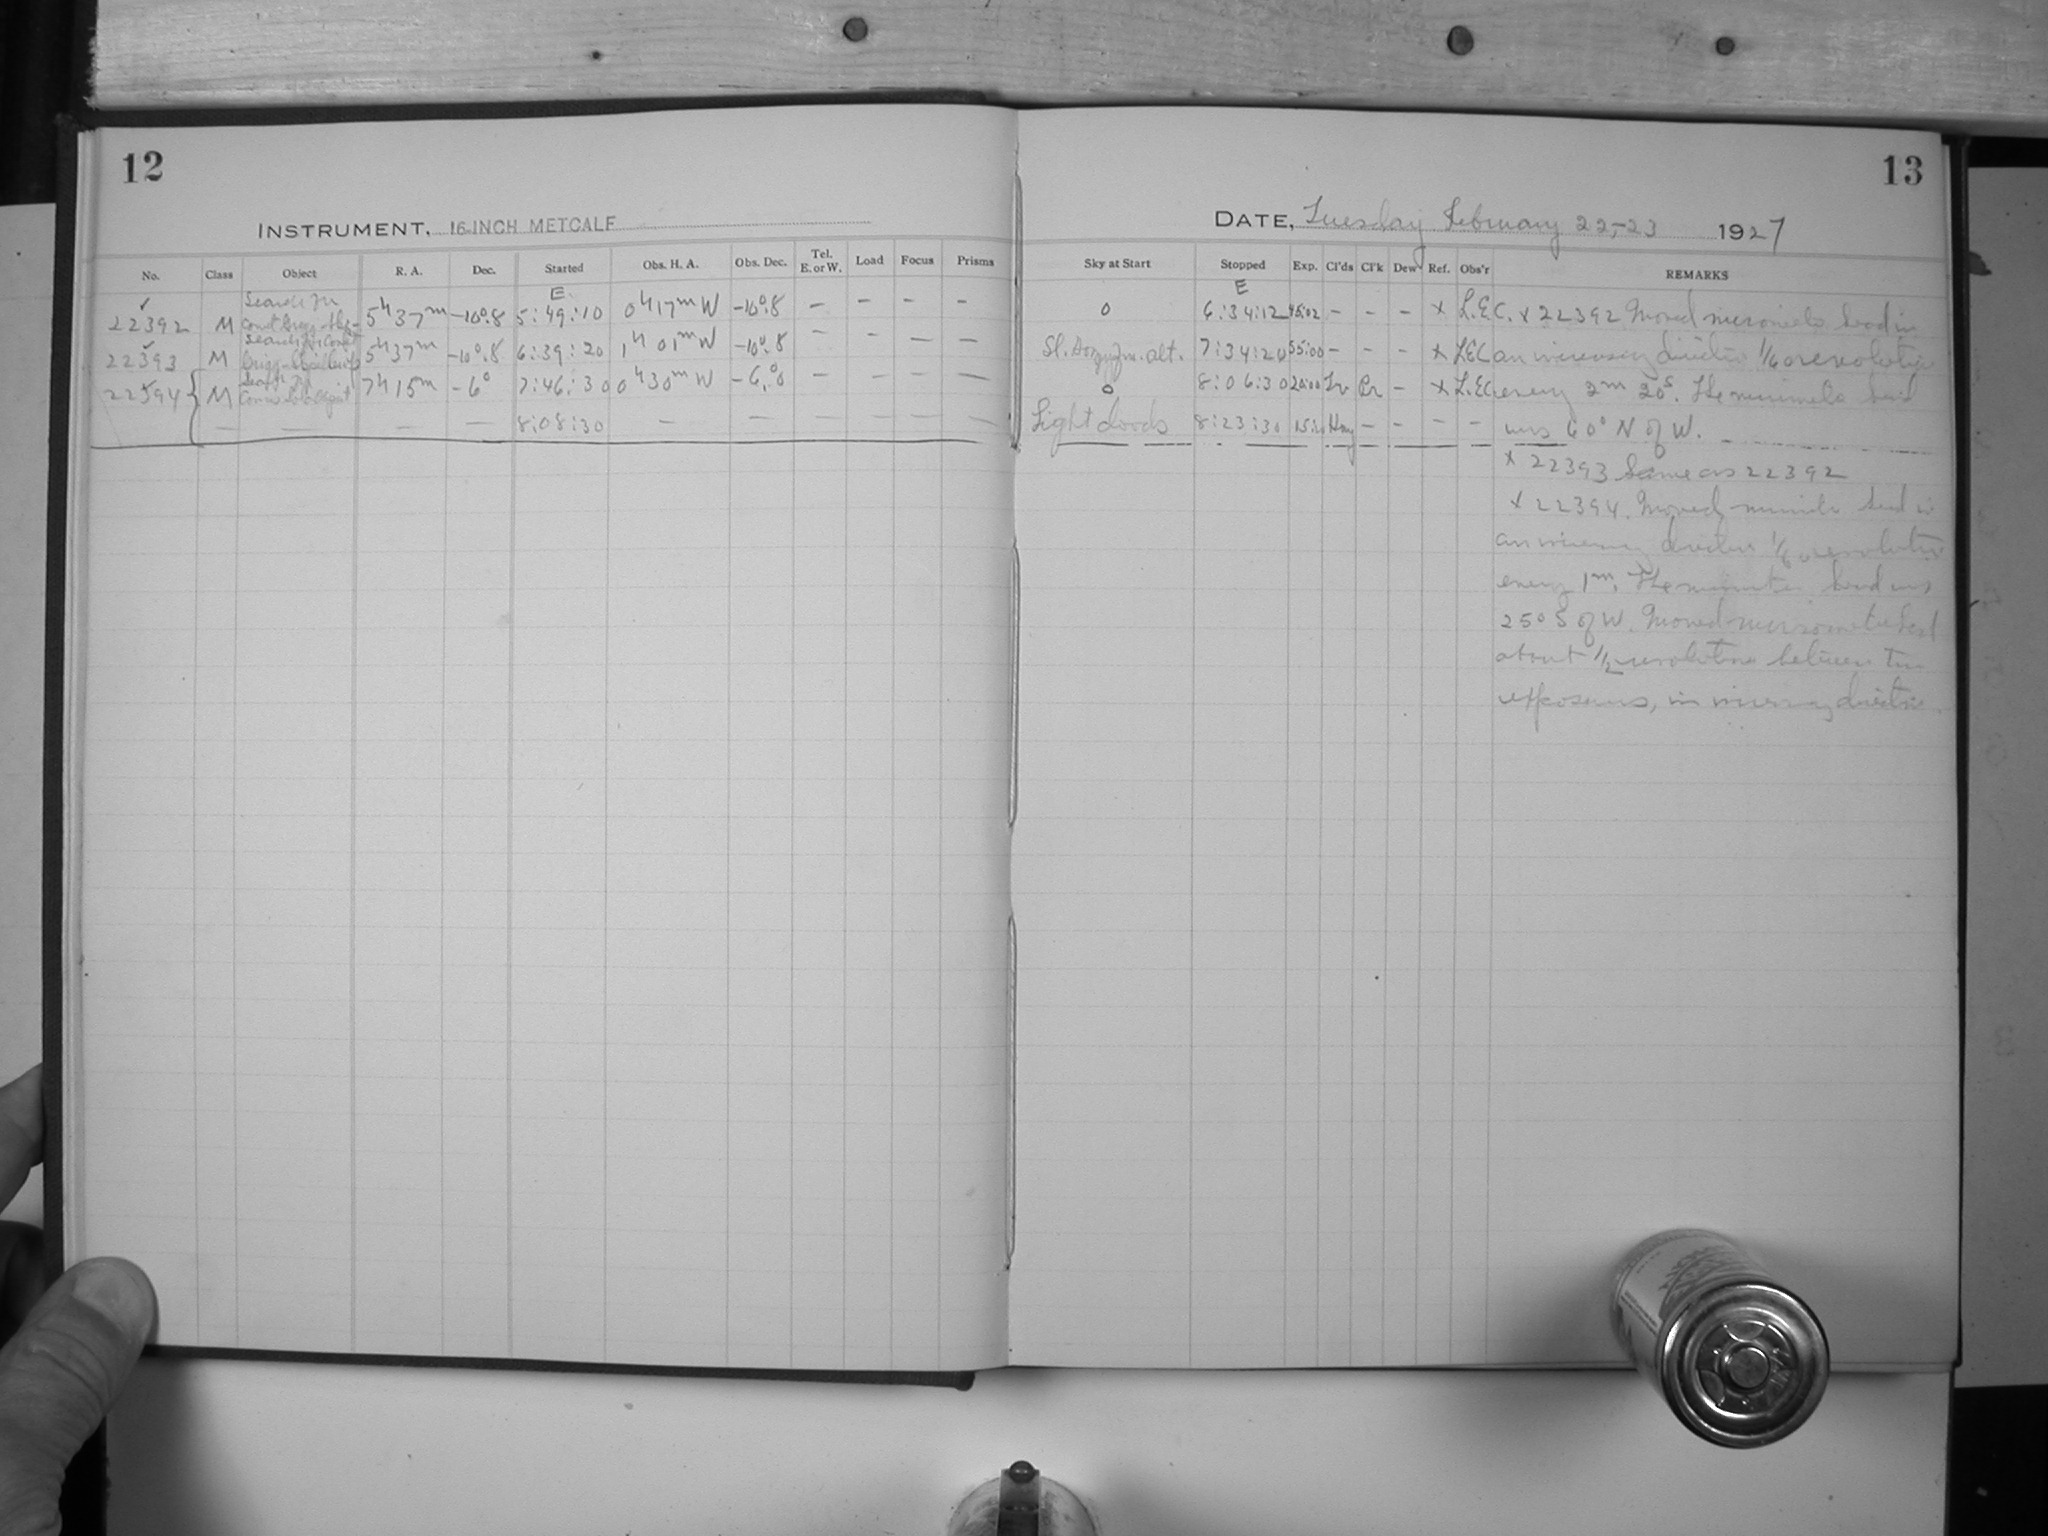 12
INSTRUMENT, 16-INCH METCALF
No. Class Object R. A. Dec. Started Obs. H. A. Obs. Dec. Tel. E. or W. Load Focus Prisms
E
22392 M Search for 5h37m -10°.8 5:49:10 0h17mW -10°.8 — — — —
22393 M Search for Comet 5h37m -10°.8 6:39:20 1h01mW -10°.8 — — — —
22394 M Search for 7h15m -6° 7:46:30 0h30mW -6.°0 — — — —
— — — — 8:08:30 — — — — — —
13
DATE, Tuesday February 22-23 1927
Sky at Start Stopped Exp. Cl'ds Cl'k Dew Ref. Obs'r REMARKS
E
0 6:34:12 45:02 — — — x L.E.C. x 22392 Moved micrometer head in
alt. 7:34:20 55:00 — — — x L.E.C. an increasing direction 1/6 a revolution
0 8:06:30 20:00 Cr — x L.E.C. every 2m 20s. The micrometer head
Light clouds 8:23:30 Hay — — — — was 60° N of W.
x 22393 Same as 22392
x 22394. Moved micrometer head in
an increasing direction 1/6 a revolution
every 1m. The micrometer head was
25° S of W. Moved micrometer head
about 1/2 revolution between two
exposures, in increasing direction.